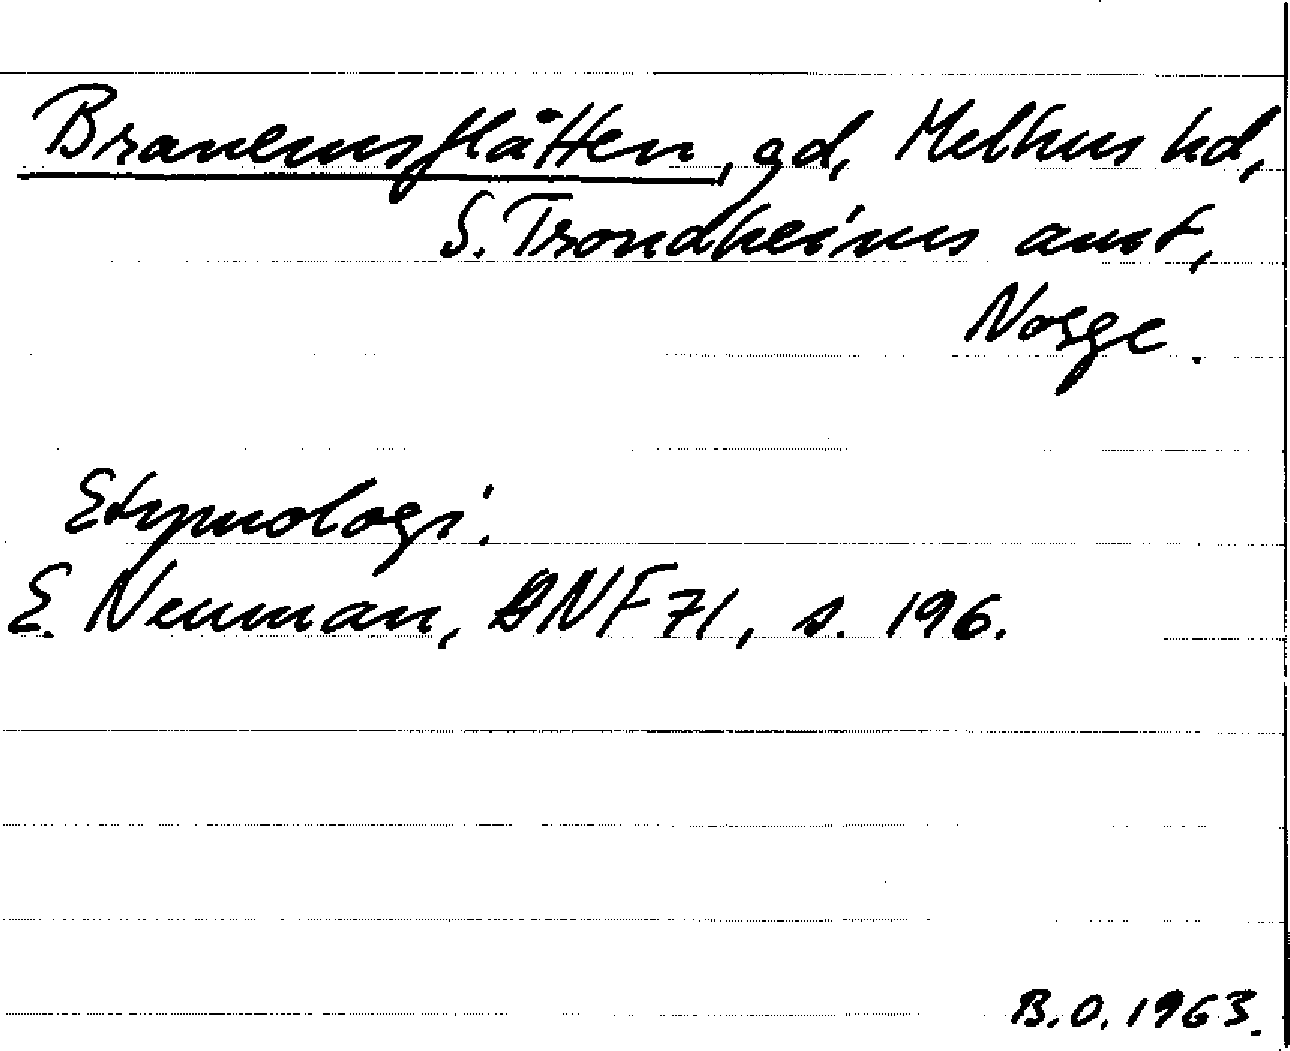 Branemsflåtten, gd, Melhus hd,
S. Trondheims amt,
Norge.
Etymologi:
E. Neuman, ANF 71, s. 196.
B.O. 1963.